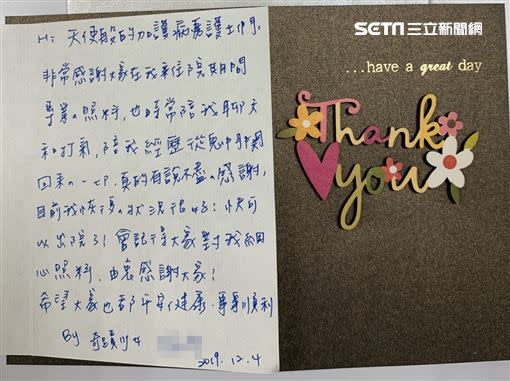 SETN 三立新聞網
...have a great day
Thank
you
Hi 天使般的加護病房護士們。
非常感謝大家在我住院期間
專業的照料,也時常陪我聊天
和打氣,陪我經歷從鬼門關
回來的一切,真的有說不盡的感謝,
目前我恢復的狀況很好!快可
以出院了!會記得大家對我細
心照料,由衷感謝大家!
希望大家也都平安健康、事事順利
By 奇蹟少女
2019.12.4